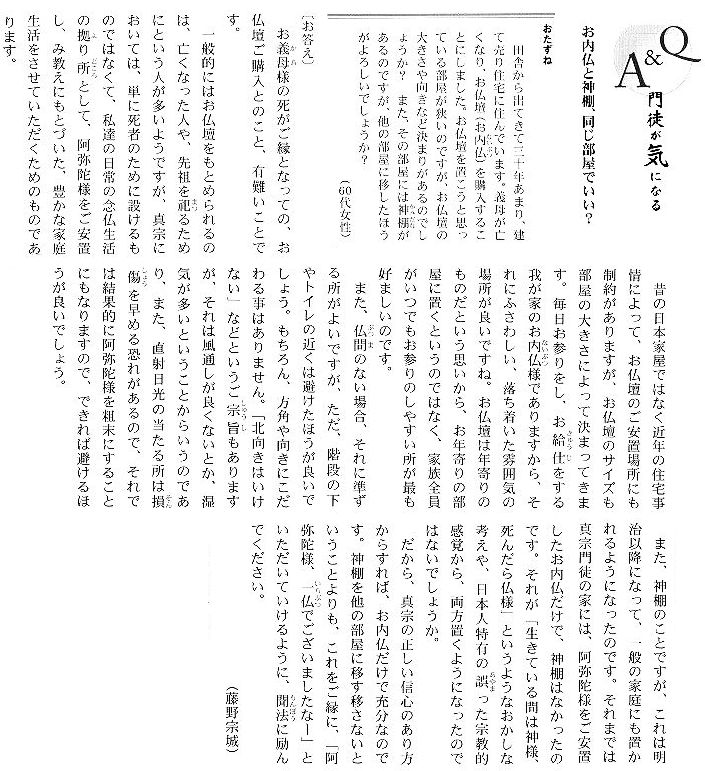 Q&A
門徒が気になる
お内仏と神棚、同じ部屋でいい?
おたずね
田舎から出てきて三十年あまり、建
て売り住宅に住んでいます。義母が亡
くなり、お仏壇(お内仏)を購入するこ
とにしました。お仏壇を置こうと思っ
ている部屋が狭いのですが、お仏壇の
大きさや向きなど決まりがあるのでし
ょうか? また、その部屋には神棚が
あるのですが、他の部屋に移したほう
がよろしいでしょうか?
(60代女性)
〔お答え〕
お義母様の死がご縁となっての、お
仏壇ご購入とのこと、有難いことで
す。
一般的にはお仏壇をもとめられるの
は、亡くなった人や、先祖を祀るため
にという人が多いようですが、真宗に
おいては、単に死者のために設けるも
のではなくて、私達の日常の念仏生活
の拠り所として、阿弥陀様をご安置
し、み教えにもとづいた、豊かな家庭
生活をさせていただくためのものであ
ります。
昔の日本家屋ではなく近年の住宅事
情によって、お仏壇のご安置場所にも
制約がありますが、お仏壇のサイズも
部屋の大きさによって決まってきま
す。毎日お参りをし、お給仕をする
我が家のお内仏様でありますから、そ
れにふさわしい、落ち着いた雰囲気の
場所が良いですね。お仏壇は年寄りの
ものだという思いから、お年寄りの部
屋に置くというのではなく、家族全員
がいつでもお参りのしやすい所が最も
好ましいのです。
また、仏間のない場合、それに準ず
る所がよいですが、ただ、階段の下
やトイレの近くは避けたほうが良いで
しょう。もちろん、方角や向きにこだ
わる事はありません。「北向きはいけ
ない」などというご宗旨もあります
が、それは風通しが良くないとか、湿
気が多いということからいうのであ
り、また、直射日光の当たる所は損
傷を早める恐れがあるので、それで
は結果的に阿弥陀様を粗末にすること
にもなりますので、できれば避けるほ
うが良いでしょう。
また、神棚のことですが、これは明
治以降になって、一般の家庭にも置か
れるようになったのです。それまでは
真宗門徒の家には、阿弥陀様をご安置
したお内仏だけで、神棚はなかったの
です。それが「生きている間は神様、
死んだら仏様」というようなおかしな
考えや、日本人特有の誤った宗教的
感覚から、両方置くようになったので
はないでしょうか。
だから、真宗の正しい信心のあり方
からすれば、お内仏だけで充分なので
す。神棚を他の部屋に移す移さないと
いうことよりも、これをご縁に、「阿
弥陀様、一仏でございましたなー」と
いただいていけるように、聞法に励ん
でください。
(藤野宗城)